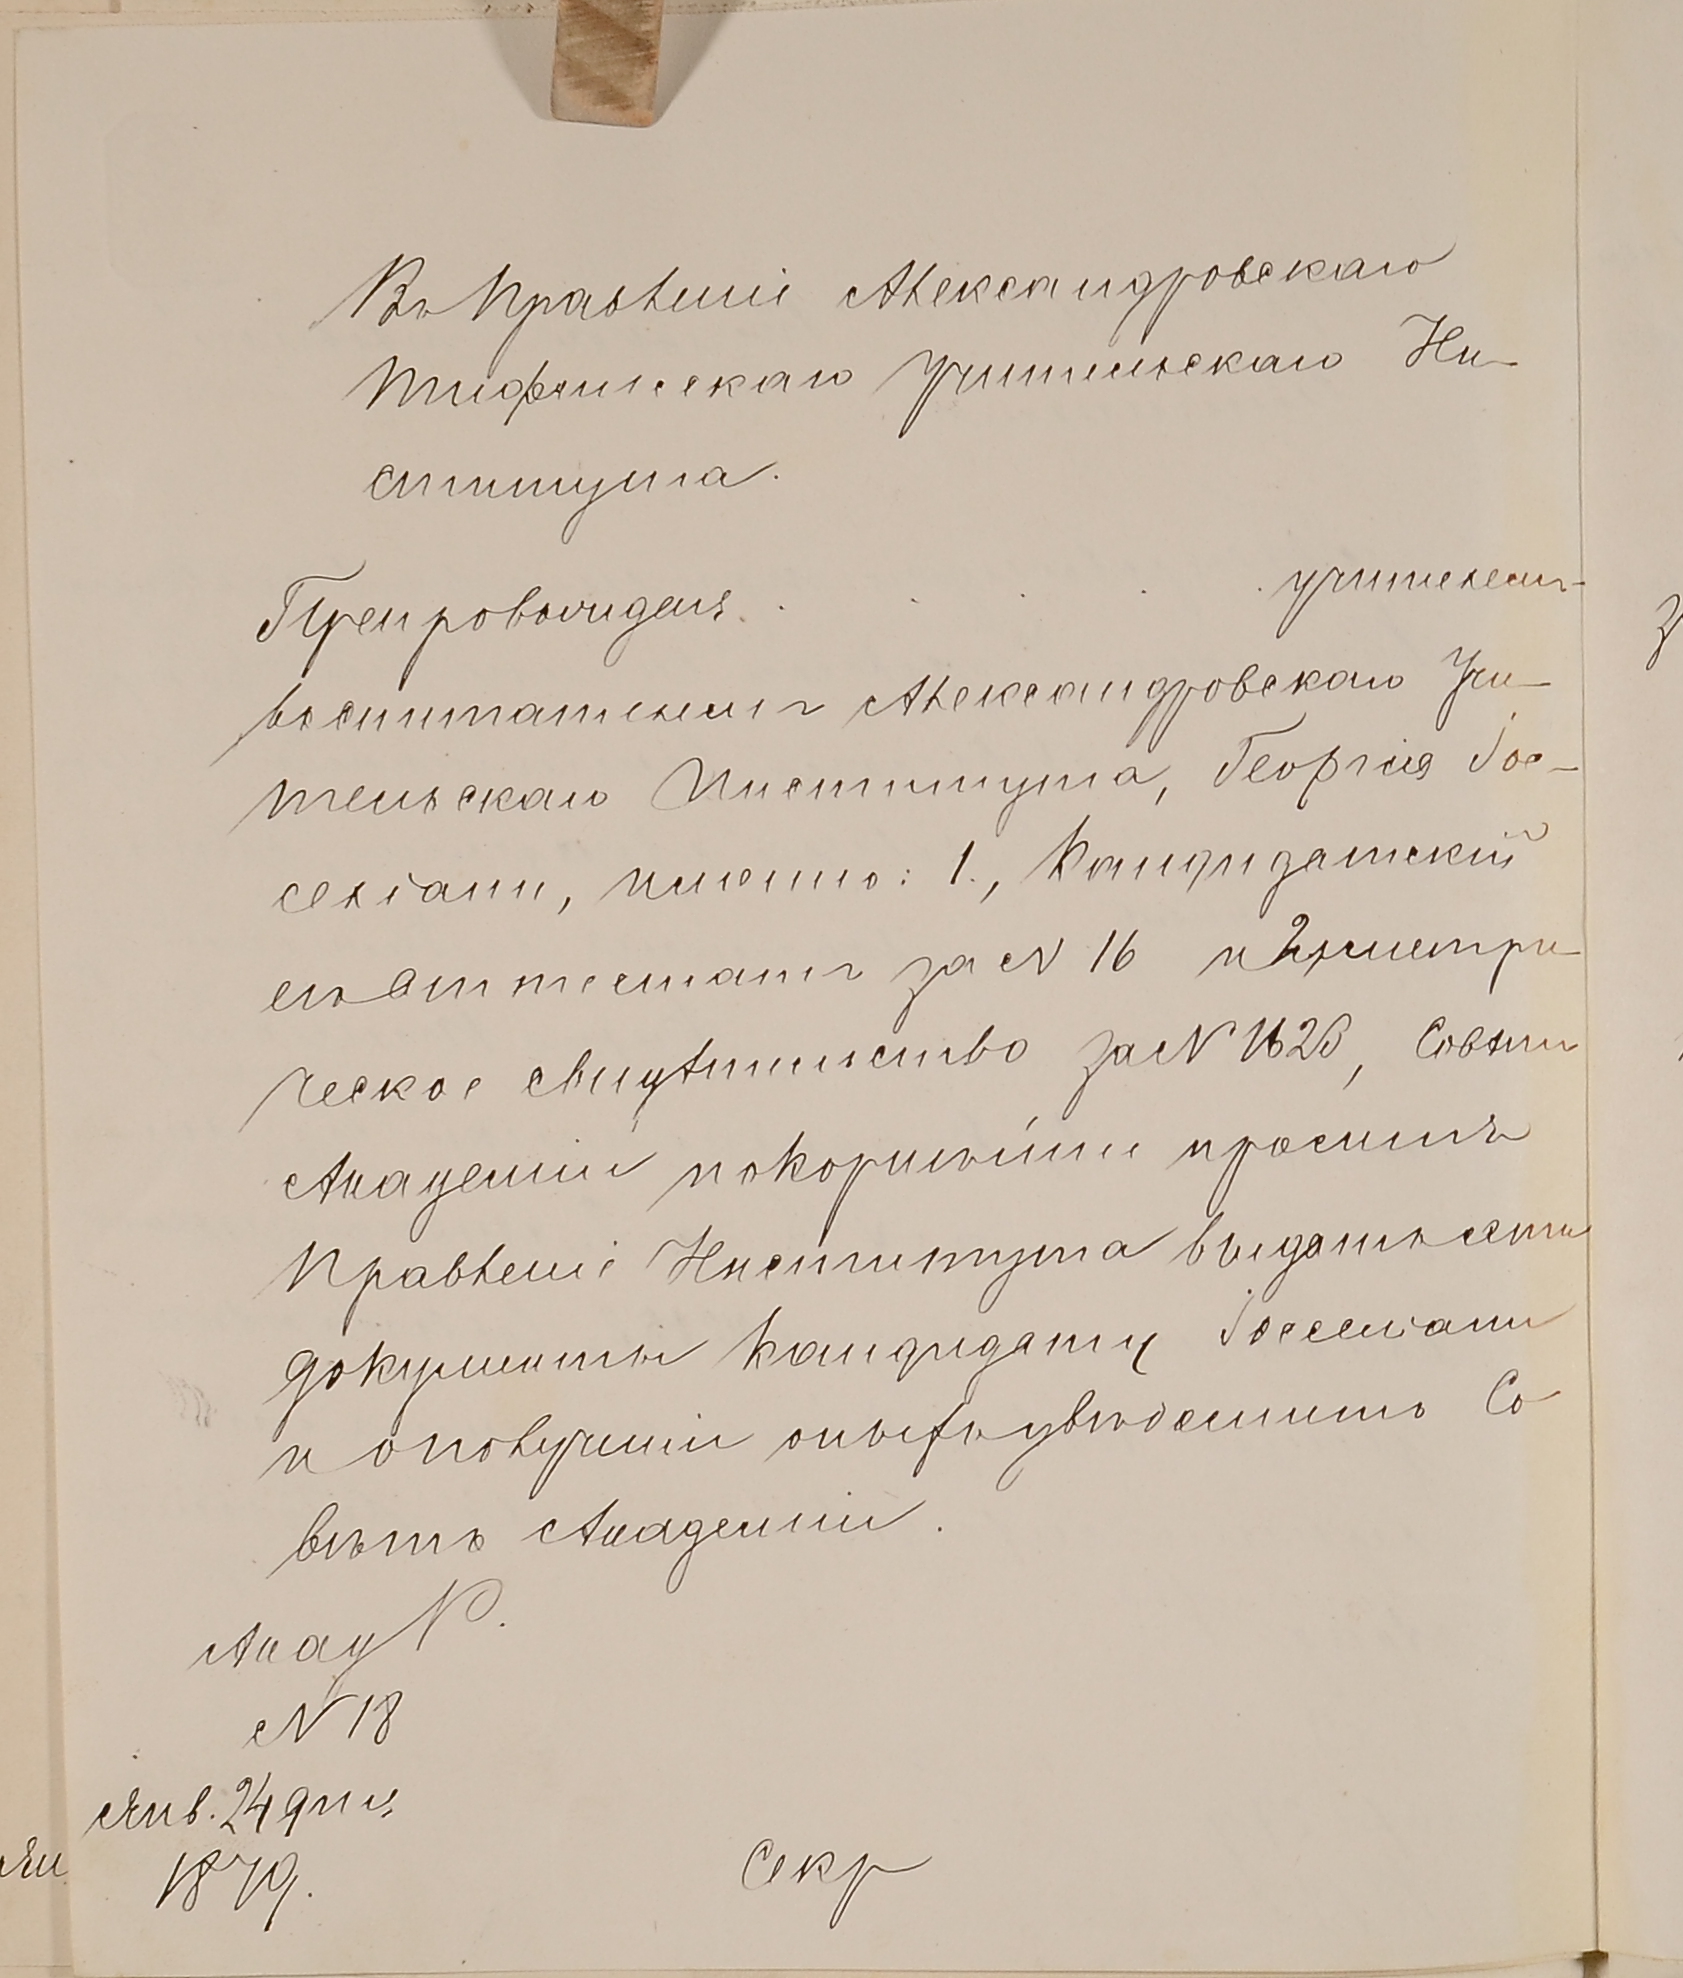 Въ Правленіе Александровскаго
Тифлисскаго Учительскаго Ин-
ститута.
Препровождая . . . . . учителем
воспитателем г Александровскаго Учи-
тельскаго Института, Георгія Іос-
селіани, именно: 1., Кандидатскій
аттестатъ за N 16 и 2, метри
ческое свидѣтельство за N 1623, Совѣтъ
Академіи покорнѣйше проситъ
Правленіе Института выдать
документы Кандидату Іосселіани
и о полученіи оныхъ увѣдомить Со
вѣтъ Академіи.
Акад
N 18
Янв. 24 дня
1879.
Секр